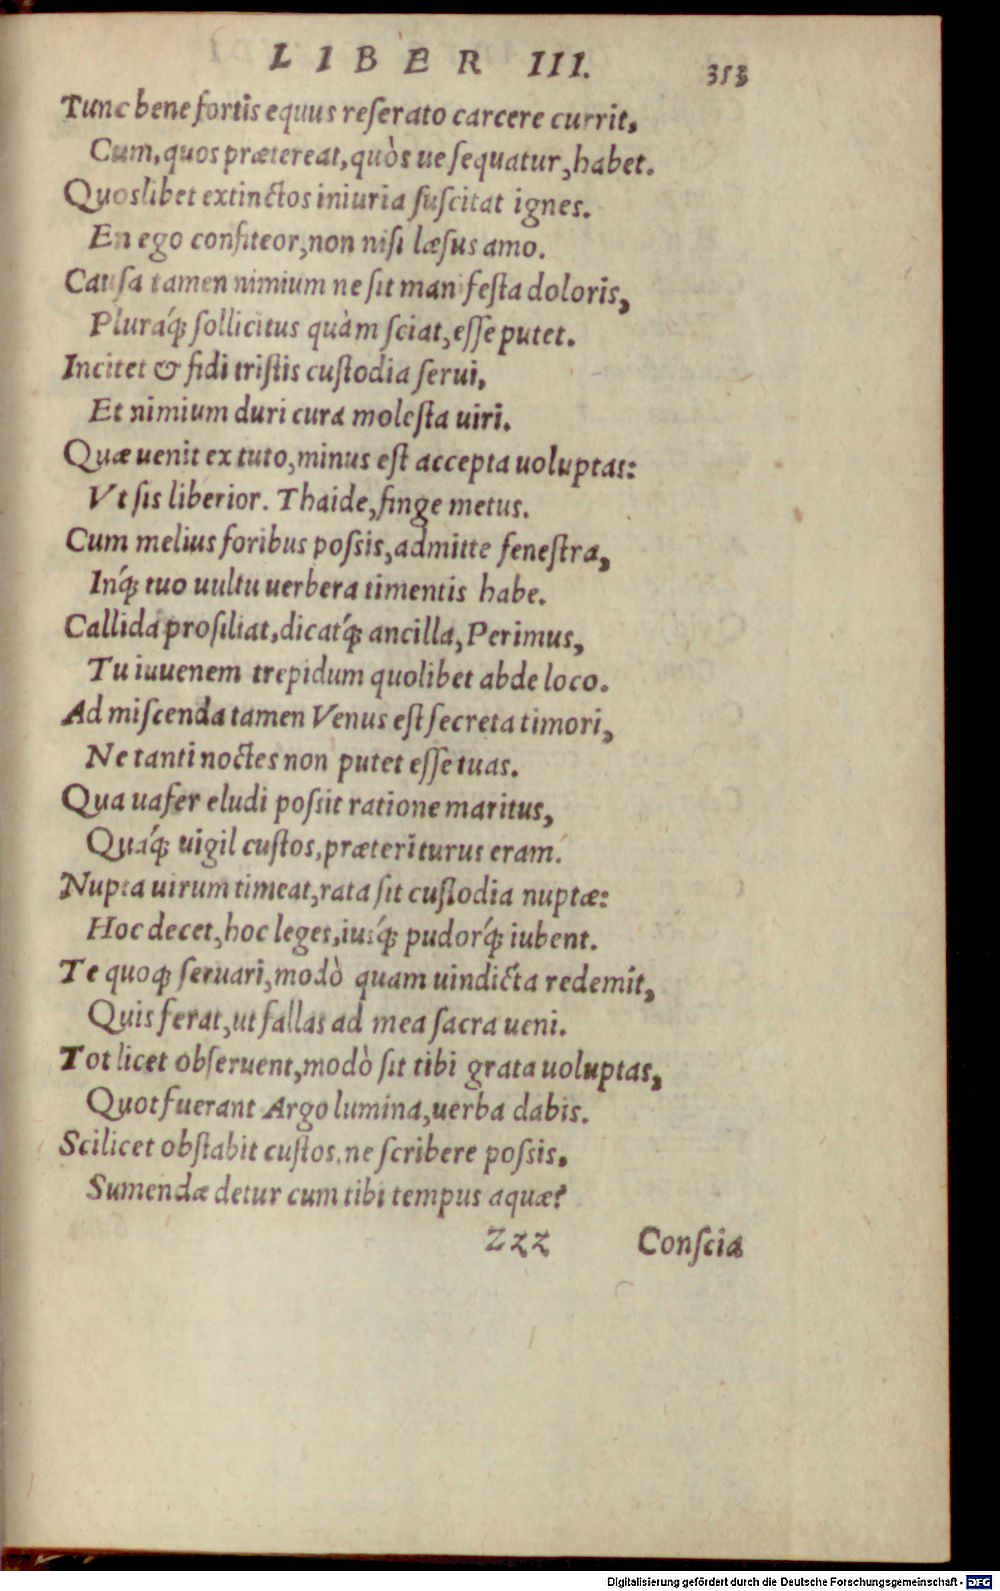 LIBER III. 353
Tunc bene fortis equus reſerato carcere currit,
Cum, quos prætereat, quòs ue ſequatur, habet.
Quoslibet extinctos iniuria ſuſcitat ignes.
En ego confiteor, non niſi læſus amo.
Cauſa tamen nimium ne ſit manifeſta doloris,
Pluráq́; ſollicitus quàm ſciat, eſſe putet.
Incitet & fidi triſtis cuſtodia ſerui,
Et nimium duri cura moleſta uiri.
Quæ uenit ex tuto, minus eſt accepta uoluptas:
Vt ſis liberior. Thaide, finge metus.
Cum melius foribus poſsis, admitte feneſtra,
Inq́; tuo uultu uerbera timentis habe.
Callida proſiliat, dicatq́; ancilla, Perimus,
Tu iuuenem trepidum quolibet abde loco.
Admiſcenda tamen Venus eſt ſecreta timori,
Ne tanti noctes non putet eſſe tuas.
Qua uafer eludi poſsit ratione maritus,
Quáq́; uigil cuſtos, præteriturus eram.
Nupta uirum timeat, rata ſit cuſtodia nuptæ:
Hoc decet, hoc leges, iusq́; pudorq́; iubent.
Te quoq; ſeruari, modò quam uindicta redemit,
Quis ferat, ut fallas ad mea ſacra ueni.
Tot licet obſeruent, modò ſit tibi grata uoluptas,
Quot fuerant Argo lumina, uerba dabis.
Scilicet obſtabit cuſtos, ne ſcribere poſsis,
Sumendæ detur cum tibi tempus aquæ?
Zzz Conſcia
Digitalisierung gefördert durch die Deutsche Forschungsgemeinschaft - DFG